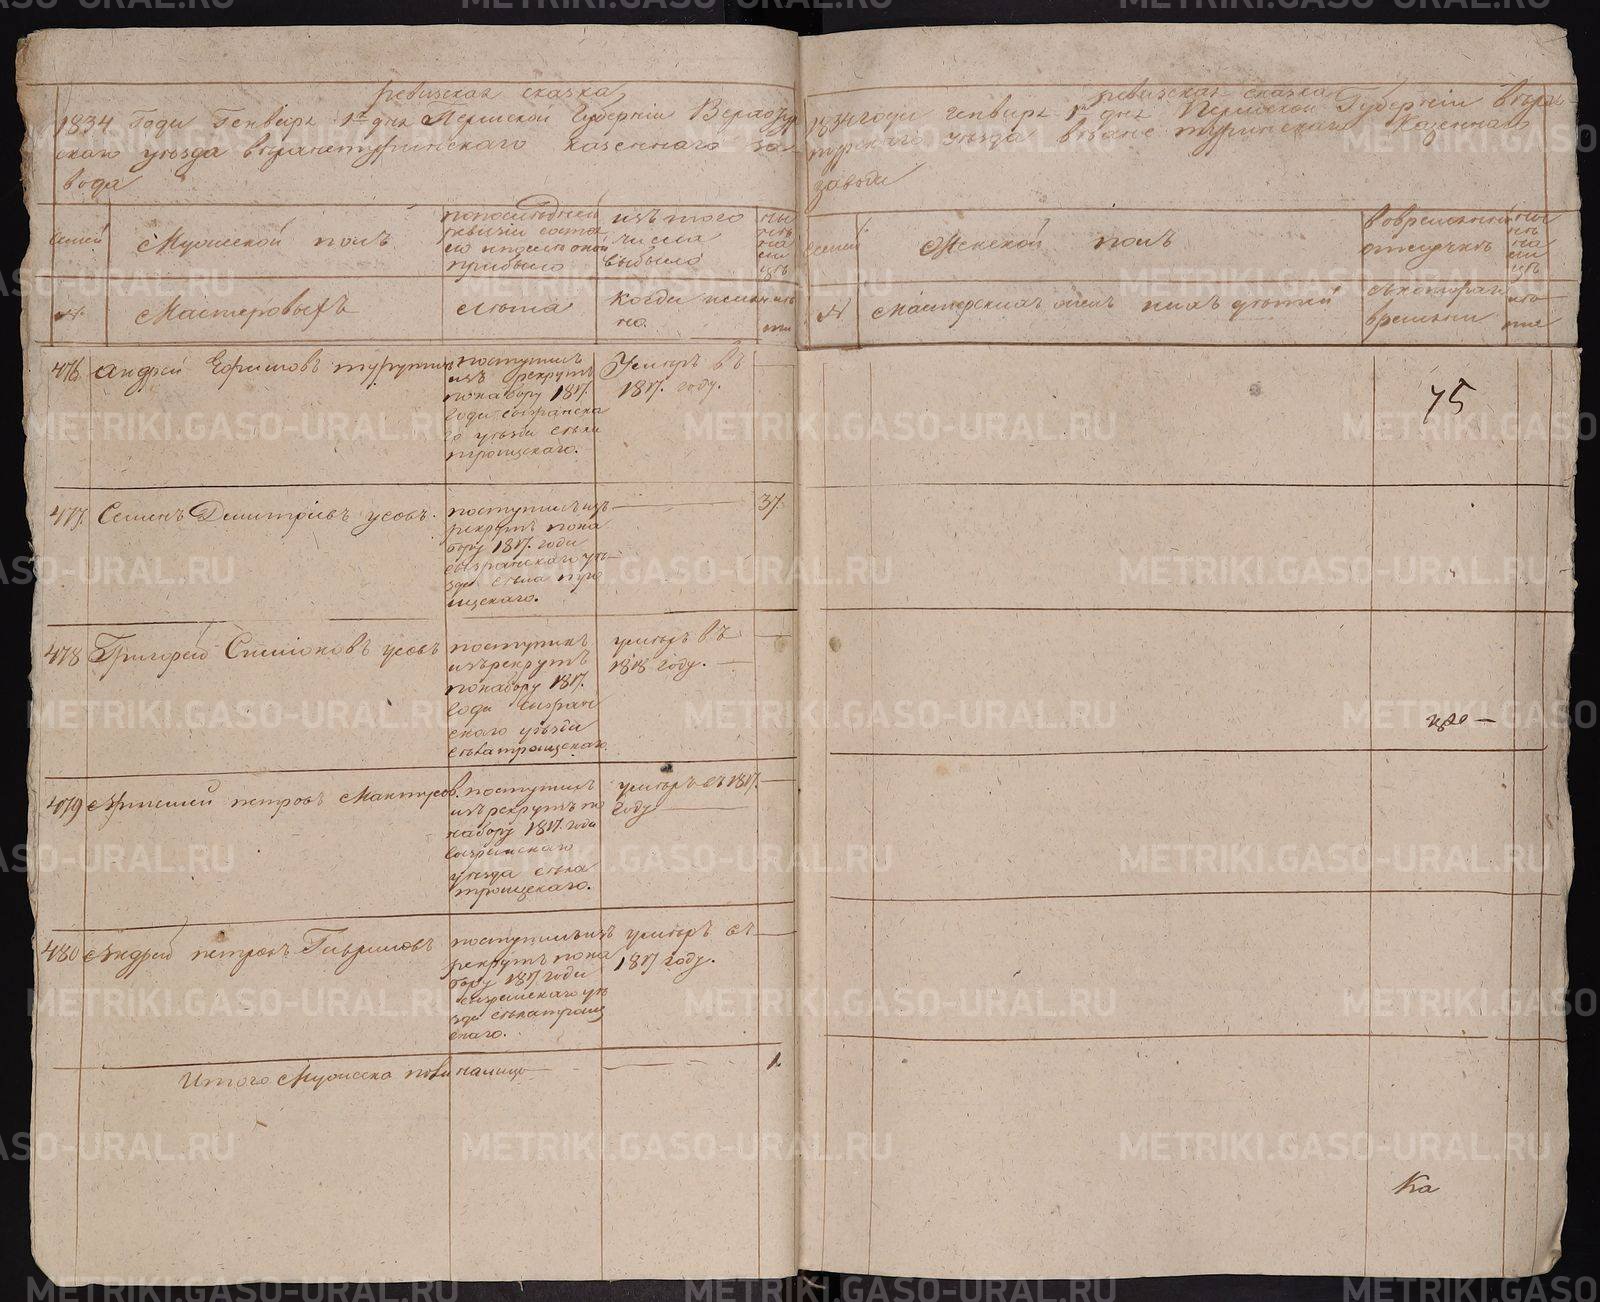 ревизская сказка
1834 Года Генваря 1го дня Пермской Губернии Верхотур
скаго уезда верхнетуринскаго казеннаго за-
вода
Семей
Мужеской полъ
попоследней
ревизии состо
яло и после оной
прибыло
изъ того
числа
выбыло
ны
не
на
ли
цо
№
Мастеровыхъ
Лета
Когда имен
но.
лета
476 Андрей Ефимовъ
поступилъ
изъ рекрутъ
понабору 1817.
года сызранска
го уезда села
троицкаго.
Умеръ въ
1817. году.
477. Семенъ Дмитріевъ усовъ.
поступилъ изъ
рекрутъ пона
бору 1817. года
сызранскаго уе-
зда села тро
ицкаго.
37.
478 Григорей Симионовъ усовъ
поступилъ
изъ рекрутъ
понабору 1817.
года сызран
скаго уезда
села троицкаго.
умеръ въ
1818 году.
479 Артемей петровъ
поступилъ
изъ рекрутъ по
набору 1817. года
сызранскаго
уезда села
троицкаго.
умеръ въ 1817.
году
480 Андрей петровъ Гавриловъ
поступилъ изъ
рекрутъ пона
бору 1817 года
сызранскаго уе
зда села троиц
каго.
умеръ въ
1817 году.
Итого Мужеска пола налицо
1.
ревизская сказка
1834 года генваря 1 дня Пермской Губернии верхо-
турскаго уезда верхне туринскаго Казеннаго
завода
Семей
Женской полъ
вовременной
отлучке
ны
не
на
ли
цо
№
Мастерския жены и ихъ детей
съ котораго
времени
ле
та
75
Ка
METRIKI.GASO-URAL.RU